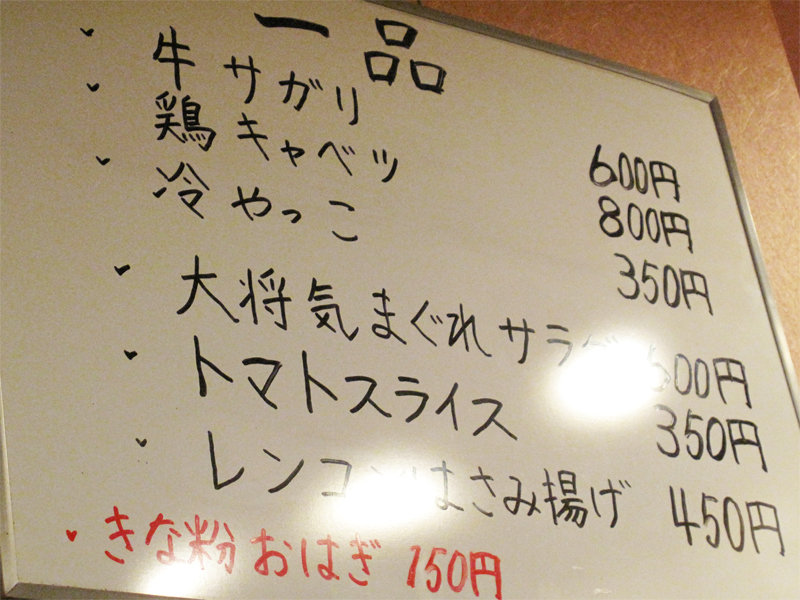 一品
牛サガリ 600円
鶏キャベツ 800円
冷やっこ 350円
大将気まぐれサラダ 600円
トマトスライス 350円
レンコンはさみ揚げ 450円
きな粉おはぎ 150円